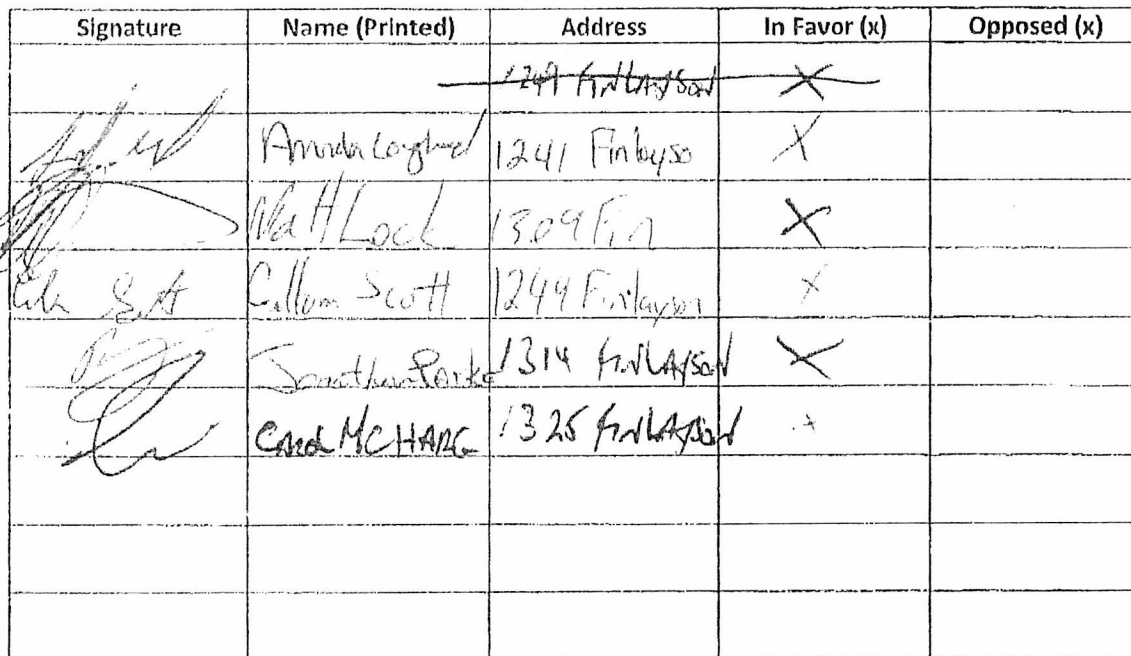 Signature Name (Printed) Address In Favor (x) Opposed (x)
FINLAYSON X
1241 Finlayso X
Matt Lock 1309 Fin X
Callum Scott 1249 Finlayson X
Jonathan Parke 1314 FINLAYSON X
CAROL MCHARG 1325 FINLAYSON x